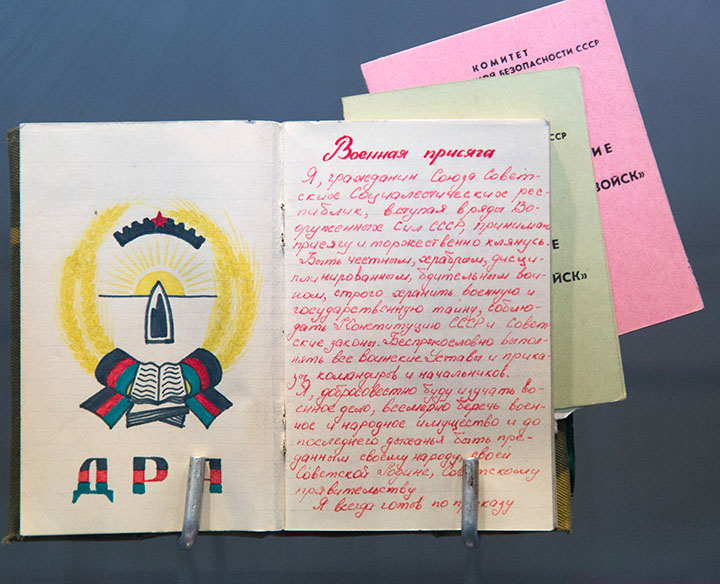 КОМИТЕТ
БЕЗОПАСНОСТИ СССР
ВОЙСК»
ВОЙСК»
ДРА
Военная присяга
Я, гражданин Союза Совет-
ских Социалестических рес-
публик, вступая в ряды Во-
оруженных Сил СССР, принимаю
присягу и торжественно клянусь.
Быть честным, храбрым, дисци-
плинированным, бдительным вои-
ном, строго хранить военную и
государственную тайну, соблю-
дать Конституцию СССР и Совет-
ские законы. Беспрекословно выпол-
нять все воинские Уставы и прика-
зы командиров и начальников.
Я, добросовестно буду изучать во-
енное дело, всемерно беречь воен-
ное и народное имущество и до
последнего дыханья быть пре-
данным своему народу, своей
Советской Родине, Советскому
правительству
Я всегда готов по приказу